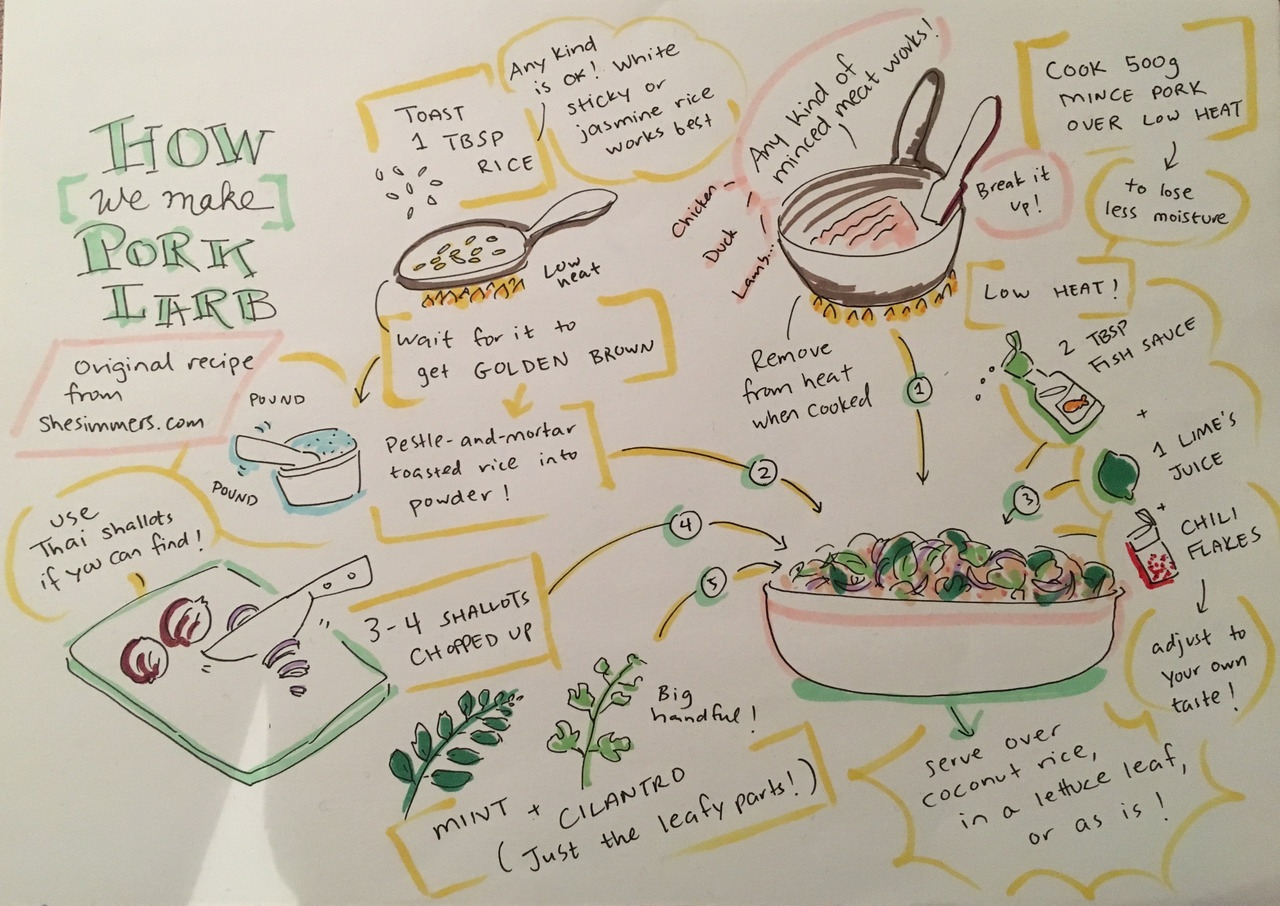 HOW
[we make]
PORK
LARB
Original recipe
from
Shesimmers.com
TOAST
1 TBSP
RICE
Any kind
is OK! White
sticky or
jasmine rice
works best
Low
heat
Wait for it to
get GOLDEN BROWN
POUND
POUND
Pestle-and-mortar
toasted rice into
powder!
2
use
Thai shallots
if you can find!
3-4 SHALLOTS
CHOPPED UP
4
Big
handful!
MINT + CILANTRO
(Just the leafy parts!)
5
Any kind of
minced meat works!
Chicken
Duck
Lamb...
COOK 500g
MINCE PORK
OVER LOW HEAT
to lose
less moisture
Break it
up!
LOW HEAT!
Remove
from heat
when cooked
1
2 TBSP
FISH SAUCE
+
1 LIME'S
JUICE
+
CHILI
FLAKES
3
adjust to
your own
taste!
serve over
coconut rice,
in a lettuce leaf,
or as is!